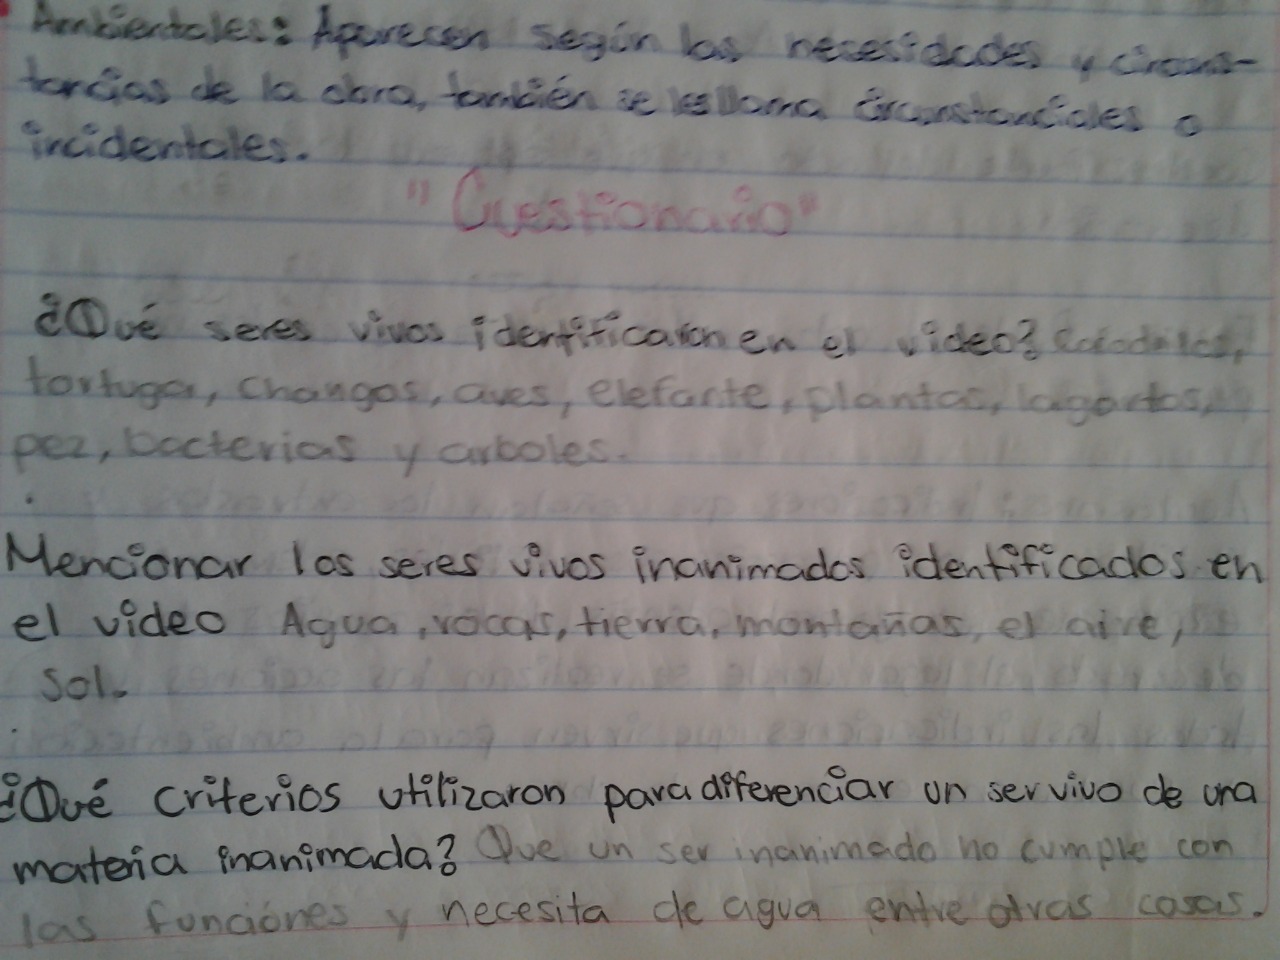 Ambientales: Aparecen según las necesidades y circuns-
tancias de la obra, también se les llama circunstanciales o
incidentales.
"Cuestionario"
¿Qué seres vivos identificaron en el video? Cocodrilos,
tortuga, changos, aves, elefante, plantas, lagartos,
pez, bacterias y arboles.
Mencionar los seres vivos inanimados identificados en
el video Agua, rocas, tierra, montañas, el aire,
sol.
¿Qué criterios utilizaron para diferenciar un ser vivo de una
materia inanimada? Que un ser inanimado no cumple con
las funciónes y necesita de agua entre otras cosas.